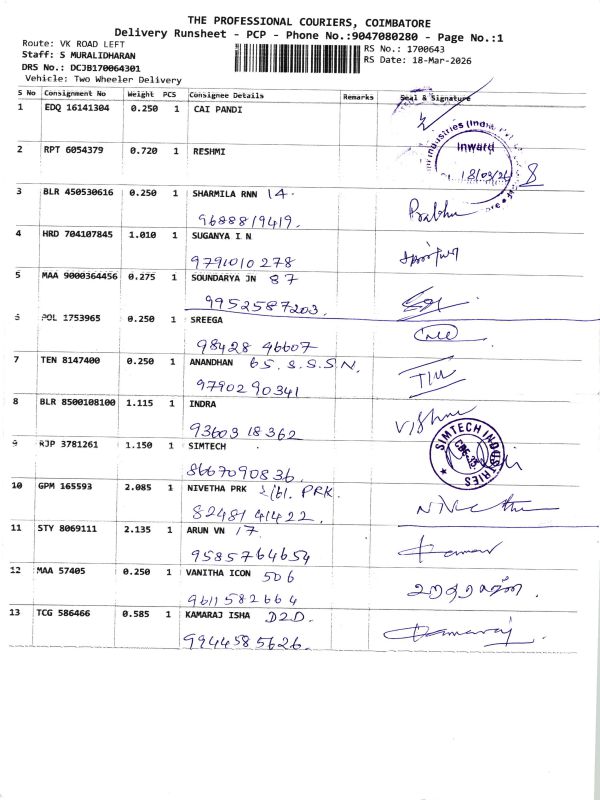 THE PROFESSIONAL COURIERS, COIMBATORE
Delivery Runsheet - PCP - Phone No.:9047080280 - Page No.:1
Route: VK ROAD LEFT
Staff: S MURALIDHARAN
DRS No.: DCJB170064301
Vehicle: Two Wheeler Delivery
RS No.: 1700643
RS Date: 18-Mar-2026
S No Consignment No Weight PCS Consignee Details Remarks Seal & Signature
1 EDQ 16141304 0.250 1 CAI PANDI
Inward
2 RPT 6054379 0.720 1 RESHMI
3 BLR 450530616 0.250 1 SHARMILA RNN 14.
9688819419. Prabhu
4 HRD 704107845 1.010 1 SUGANYA I N
9791010278
5 MAA 9000364456 0.275 1 SOUNDARYA JN 87
9952587203.
6 POL 1753965 0.250 1 SREEGA
98428 46607
7 TEN 8147400 0.250 1 ANANDHAN 65. S.S.S.N.
9790290341
8 BLR 8500108100 1.115 1 INDRA
93603 18362
9 RJP 3781261 1.150 1 SIMTECH
8667090836.
SIMTECH INDUSTRIES
10 GPM 165593 2.085 1 NIVETHA PRK PRK.
82481 41422.
11 STY 8069111 2.135 1 ARUN VN 17.
9585764654
12 MAA 57405 0.250 1 VANITHA ICON 506
9611582664
13 TCG 586466 0.585 1 KAMARAJ ISHA D2D.
9944585626. Kamaraj